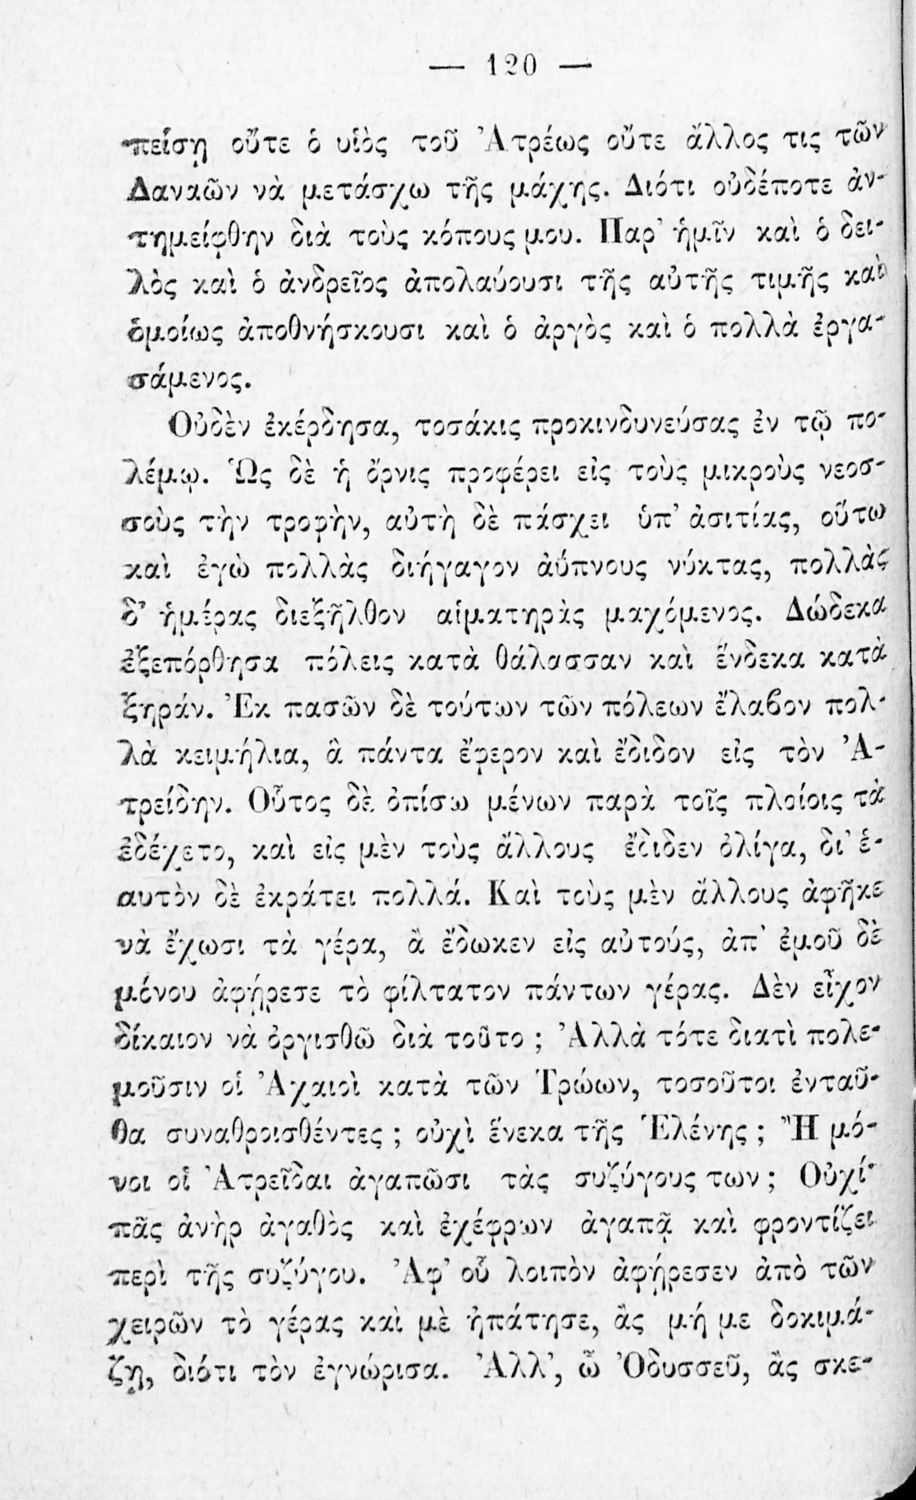 — 120 —
πείσῃ οὔτε ὁ υἱὸς τοῦ Ἀτρέως οὔτε ἄλλος τις τῶν
Δαναῶν νὰ μετάσχω τῆς μάχης. Διότι οὐδέποτε ἀν-
τημείφθην διὰ τοὺς κόπους μου. Παρ' ἡμῖν καὶ ὁ δει-
λὸς καὶ ὁ ἀνδρεῖος ἀπολαύουσι τῆς αὐτῆς τιμῆς καὶ
ὁμοίως ἀποθνήσκουσι καὶ ὁ ἀργὸς καὶ ὁ πολλὰ ἐργα-
σάμενος.
Οὐδὲν ἐκέρδησα, τοσάκις προκινδυνεύσας ἐν τῷ πο-
λέμῳ. Ὡς δὲ ἡ ὄρνις προφέρει εἰς τοὺς μικροὺς νεοσ-
σοὺς τὴν τροφὴν, αὐτὴ δὲ πάσχει ὑπ' ἀσιτίας, οὕτω
καὶ ἐγὼ πολλὰς διήγαγον ἀΰπνους νύκτας, πολλὰς
δ' ἡμέρας διεξῆλθον αἱματηρὰς μαχόμενος. Δώδεκα
ἐξεπόρθησα πόλεις κατὰ θάλασσαν καὶ ἕνδεκα κατὰ
ξηράν. Ἐκ πασῶν δὲ τούτων τῶν πόλεων ἔλαβον πολ-
λὰ κειμήλια, ἃ πάντα ἔφερον καὶ ἔδιδον εἰς τὸν Ἀ-
τρείδην. Οὗτος δὲ ὀπίσω μένων παρὰ τοῖς πλοίοις τὰ
ἐδέχετο, καὶ εἰς μὲν τοὺς ἄλλους ἔδιδεν ὀλίγα, δι' ἑ-
αυτὸν δὲ ἐκράτει πολλά. Καὶ τοὺς μὲν ἄλλους ἀφῆκε
νὰ ἔχωσι τὰ γέρα, ἃ ἔδωκεν εἰς αὐτούς, ἀπ' ἐμοῦ δὲ
μόνου ἀφήρεσε τὸ φίλτατον πάντων γέρας. Δὲν εἶχον
δίκαιον νὰ ὀργισθῶ διὰ τοῦτο ; Ἀλλὰ τότε διατὶ πολε-
μοῦσιν οἱ Ἀχαιοὶ κατὰ τῶν Τρώων, τοσοῦτοι ἐνταῦ-
θα συναθροισθέντες ; οὐχὶ ἕνεκα τῆς Ἑλένης ; Ἢ μό-
νοι οἱ Ἀτρεῖδαι ἀγαπῶσι τὰς συζύγους των ; Οὐχί
πᾶς ἀνὴρ ἀγαθὸς καὶ ἐχέφρων ἀγαπᾷ καὶ φροντίζει
περὶ τῆς συζύγου. Ἀφ' οὗ λοιπὸν ἀφήρεσεν ἀπὸ τῶν
χειρῶν τὸ γέρας καὶ μὲ ἠπάτησε, ἂς μή με δοκιμά-
ζῃ, διότι τὸν ἐγνώρισα. Ἀλλ', ὦ Ὀδυσσεῦ, ἂς σκε-